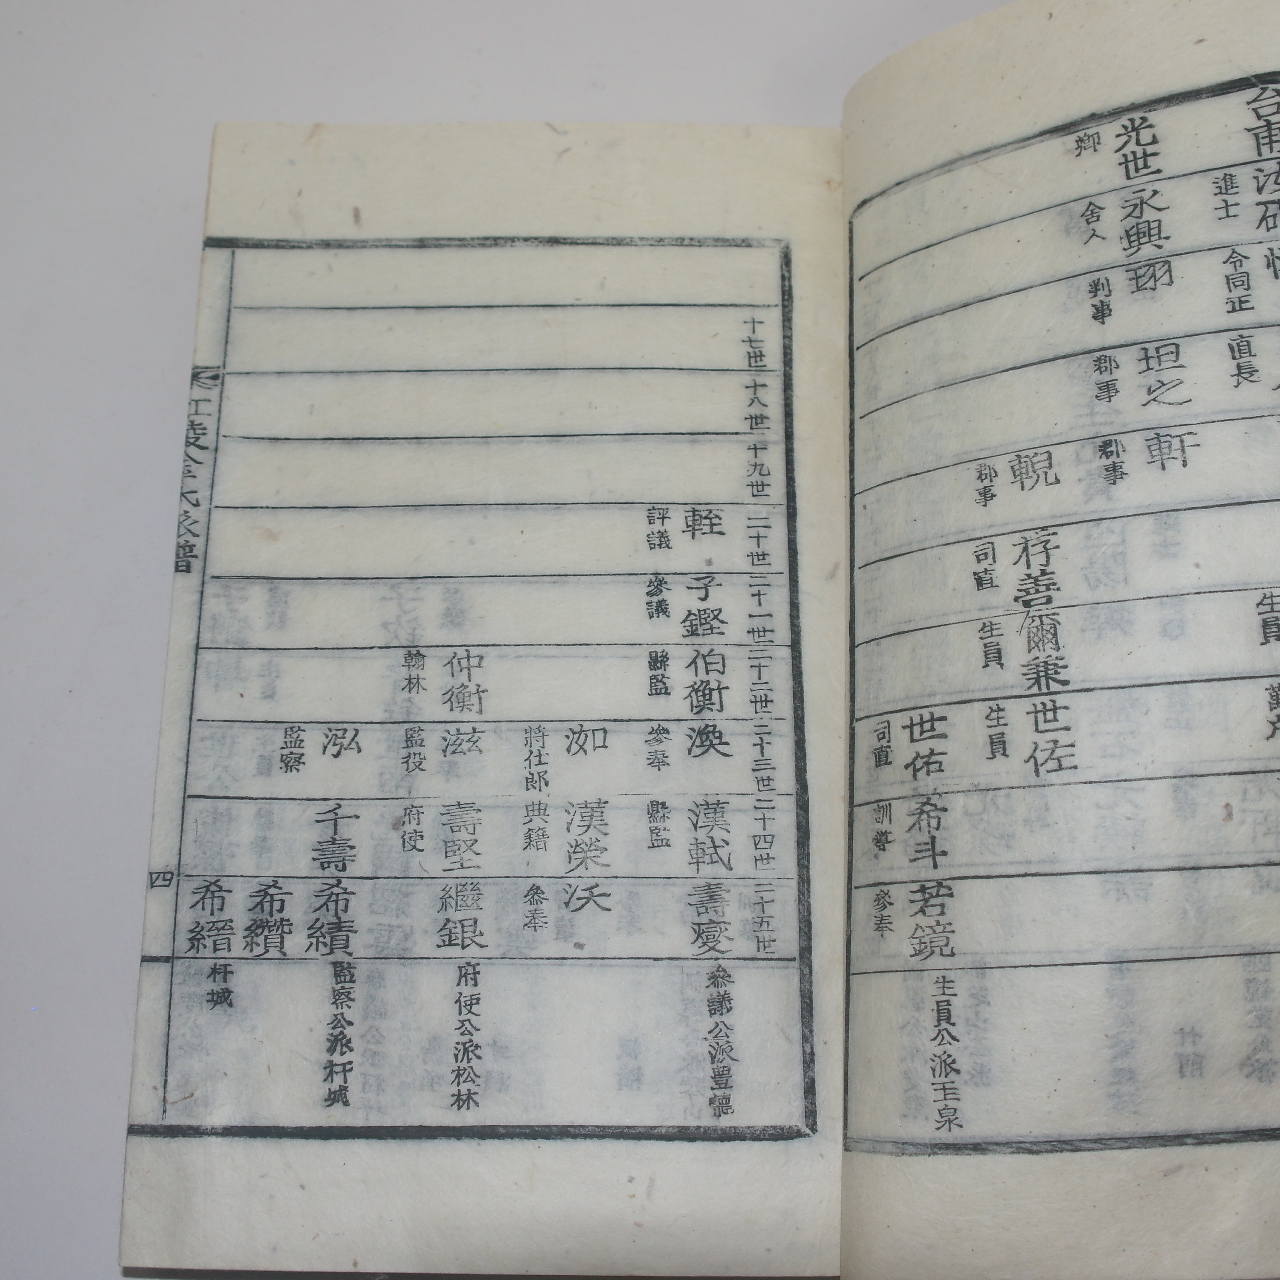 台甫
進士
令同正
直長
生員
光世
卿
永興
舍人
珝
判事
坦之
郡事
軒
郡事
輗
郡事
存善
司直
爾兼
生員
世佐
生員
世佑
司直
希斗
訓導
若鏡
參奉
生員公派玉泉
十七世
十八世
十九世
二十世
二十一世
二十二世
二十三世
二十四世
二十五世
輊
評議
子鏗
參議
伯衡
縣監
渙
參奉
漢軾
縣監
壽燮
參議公派豊德
洳
將仕郎
漢榮
典籍
沃
參奉
仲衡
翰林
滋
監役
壽堅
府使
繼銀
府使公派松林
泓
監察
千壽
希績
監察公派杆城
希纘
希縉
杆城
江陵金氏派譜
四